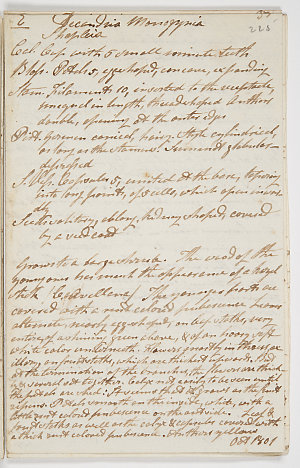 2 Decandria Monogynia 37
225
Cal. Cup with 5 small minute teeth
Bloss. Petals 5, egg shaped, concave, expanding
Stem. Filaments 10, inserted to the receptacle,
unequal in length, thread shaped. Anthers
double, opening at the outer edge
Pist. Germen conical, hairy. Style cylindrical,
as long as the stamens. Summit globular
depressed
S. Vess. Capsules 5, united at the base, tapering
into long points, of 5 cells, which open inwardly
Seeds solitary, oblong, kidney shaped, covered
by a red coat
Grows to a large shrub. The wood of the
young ones has much the appearance of a hazel
stick The younger parts are
covered with a rust colored pubescence. Leaves
alternate, nearly egg shaped, on leaf stalks, very
entire, of a shining green above, & of an hoary soft
white color underneath. Flowers, mostly in the
on footstalks, which are thickest upwards. But
at the termination of the branches, the flowers are thick
& several set together. Calyx not easily to be seen until
the petals are shed: it seems that it grows as the fruit
ripens. Petals smooth on the inside, white, with a
rust colored pubescence on the outside. Leaf &
foot stalks as well as the calyx & capsules covered with
a thick rust colored pubescence. Anthers yellow
Oct 1801